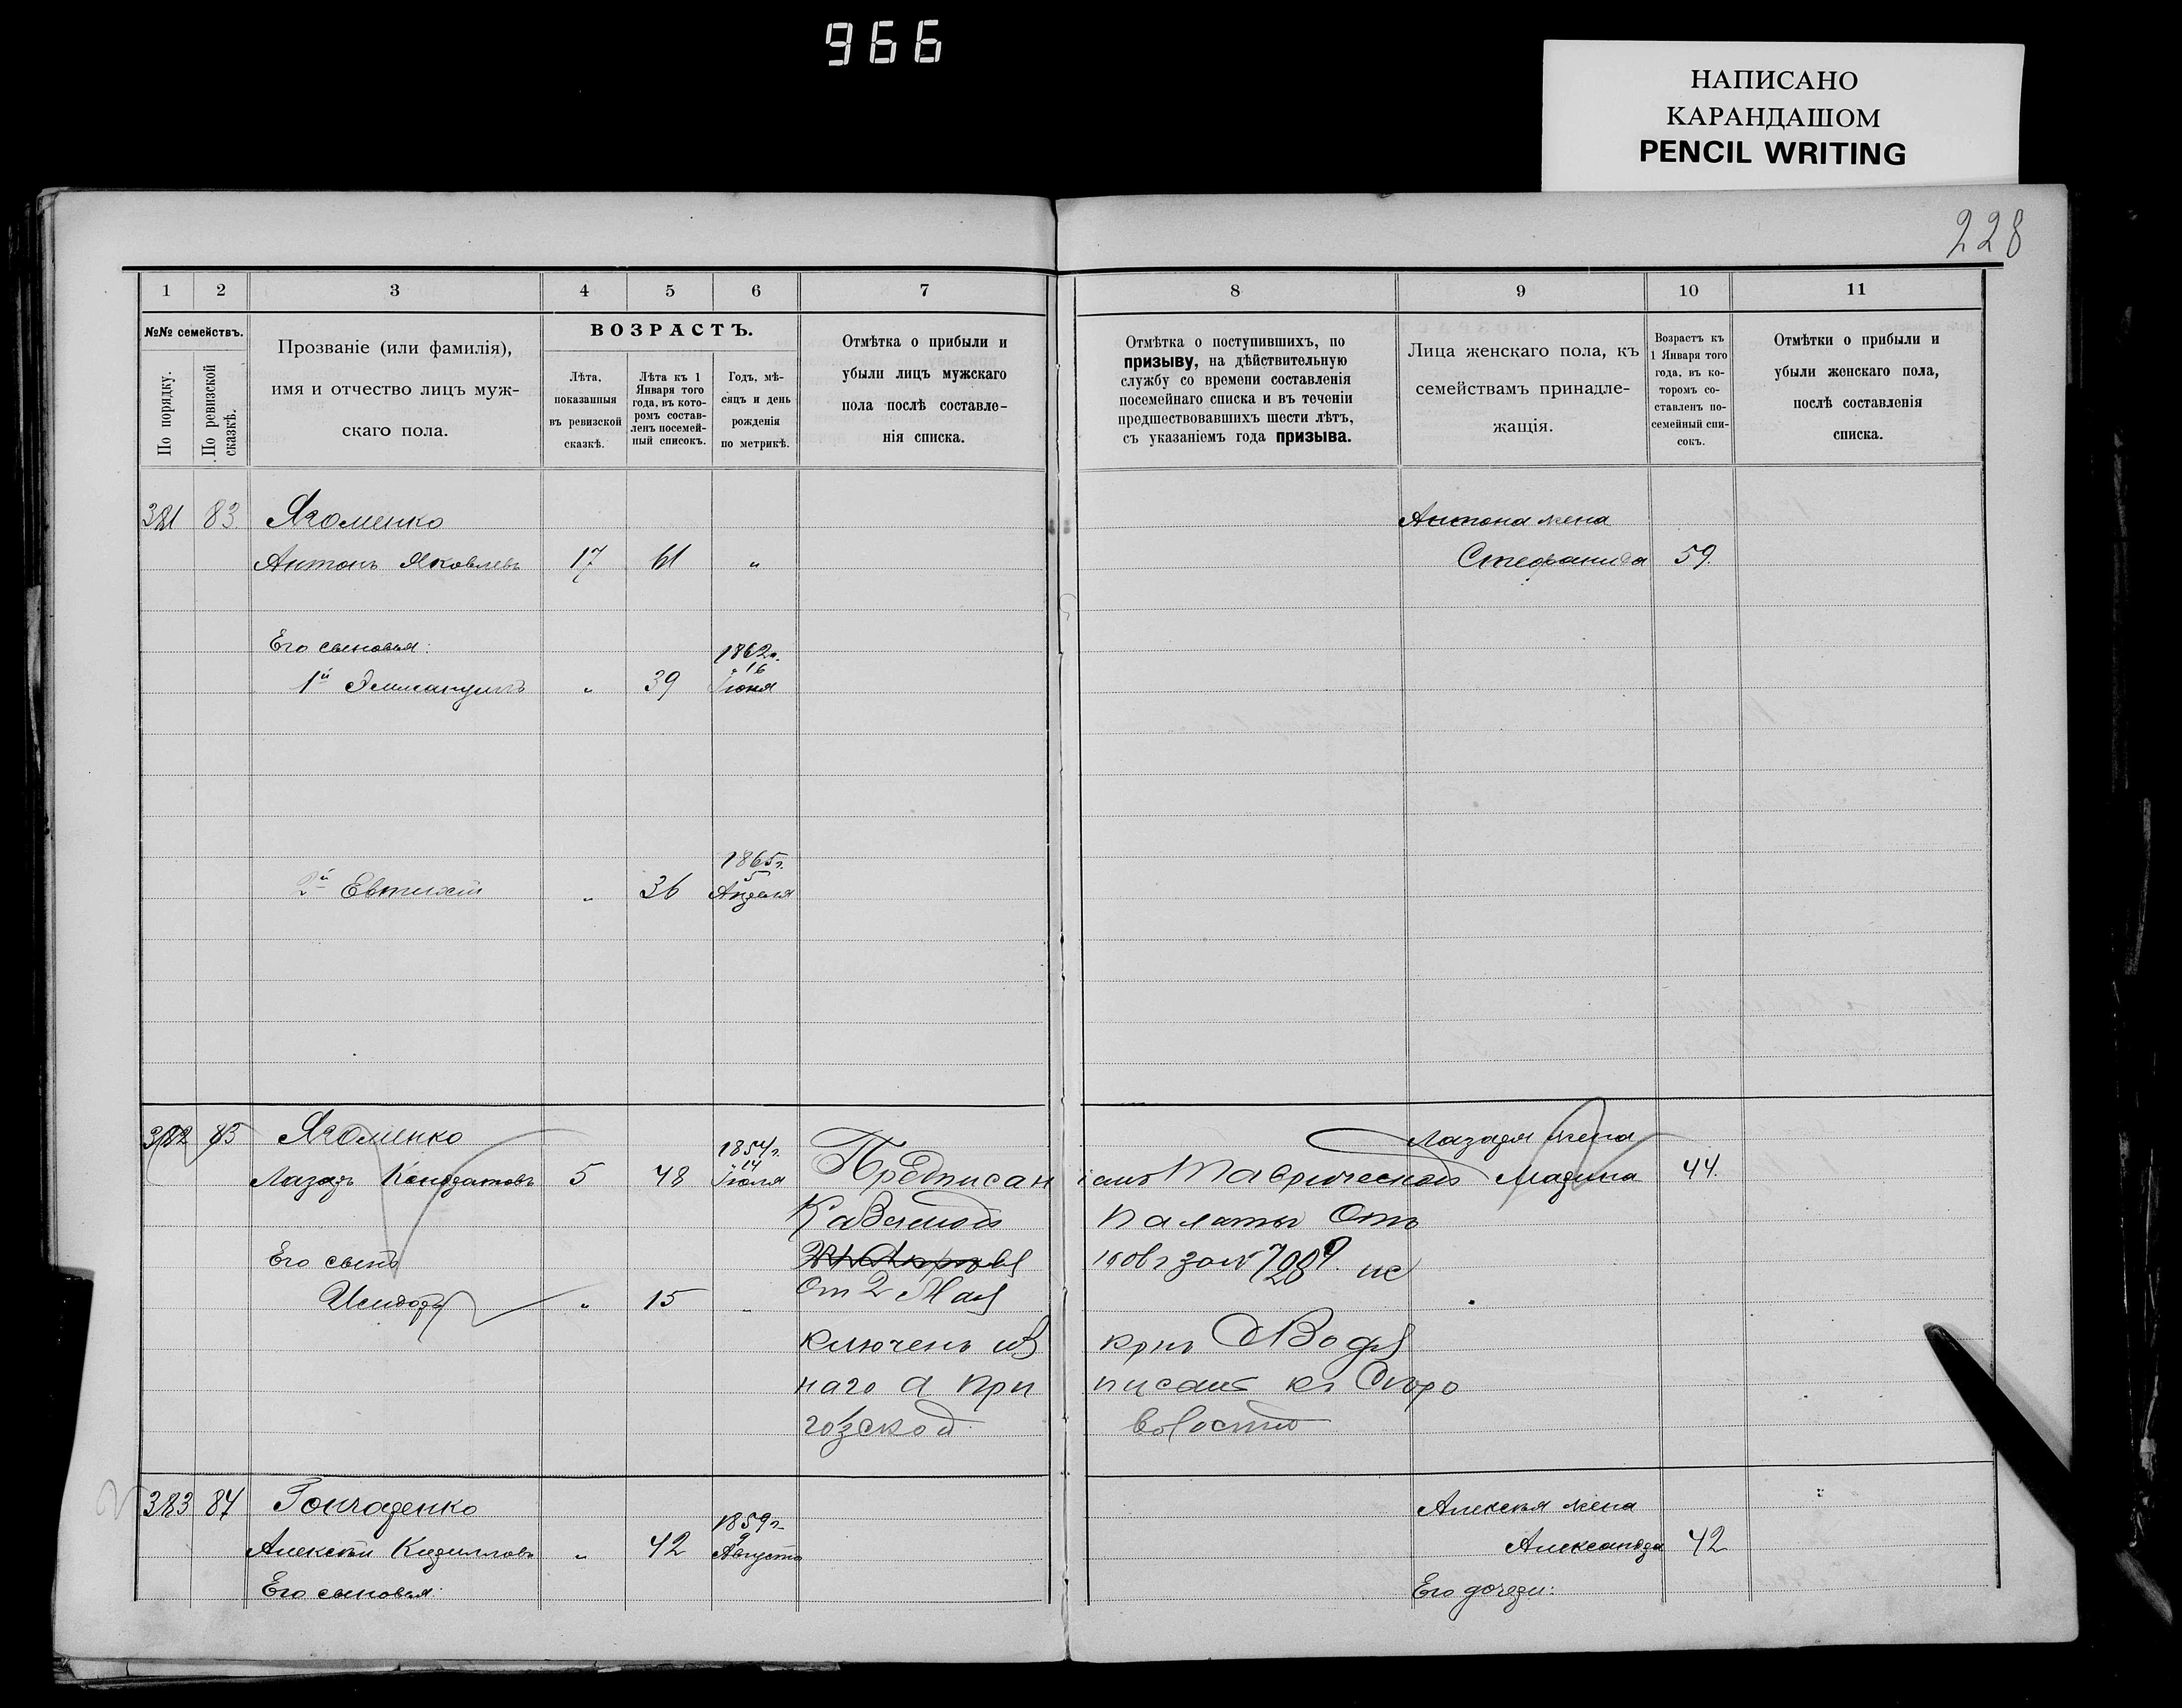 966
НАПИСАНО
КАРАНДАШОМ
PENCIL WRITING
228
1 2 3 4 5 6 7 8 9 10 11
№№ семействъ.
По порядку.
По ревизской сказкѣ.
Прозваніе (или фамилія),
имя и отчество лицъ муж-
скаго пола.
ВОЗРАСТЪ.
Лѣта,
показанныя
въ ревизской
сказкѣ.
Лѣта къ 1
Января того
года, въ кото-
ромъ состав-
ленъ посемей-
ный списокъ.
Годъ, мѣ-
сяцъ и день
рожденія
по метрикѣ.
Отмѣтка о прибыли и
убыли лицъ мужскаго
пола послѣ составле-
нія списка.
Отмѣтка о поступившихъ, по
призыву, на дѣйствительную
службу со времени составленія
посемейнаго списка и въ теченіи
предшествовавшихъ шести лѣтъ,
съ указаніемъ года призыва.
Лица женскаго пола, къ
семействамъ принадле-
жащія.
Возрастъ къ
1 Января того
года, въ ко-
торомъ со-
ставленъ по-
семейный спи-
сокъ.
Отмѣтки о прибыли и
убыли женскаго пола,
послѣ составленія
списка.
381 83 Ягоменко Антона жена
Антонъ Яковлевъ 17 61 " Стефанида 59.
Его сыновья: 1862г.
16
1й " 39 Іюня
1865г.
5
2й Евтихій " 36 Апреля
382 85 Ягоменко 1854г. Лазаря жена
14
Лазарь Кондратовъ 5 48 Іюля Предписаніемъ Таврической Марина 44.
Казенной Палаты Отъ
Его сынъ
Исидоръ " 15 " От 2 Мая
ключенъ из
наго а при писанъ къ
волости
383 87 Гончаренко 1859г. Алексѣя жена
9
Алексѣй Кирилловъ " 42 Августа Александра 42
Его сыновья: Его дочери: